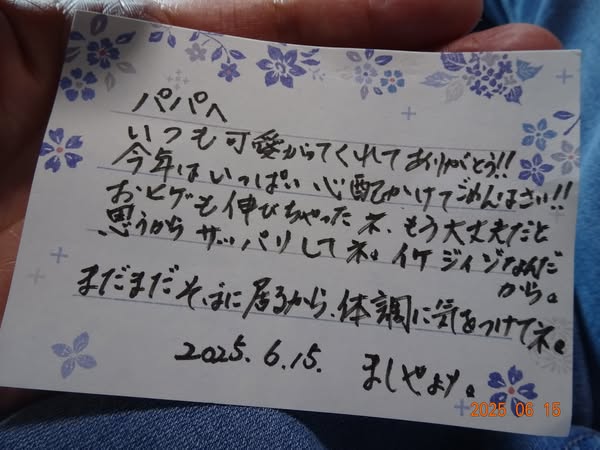 パパへ
いつも可愛がってくれてありがとう!!
今年はいっぱい心配かけてごめんなさい!!
おヒゲも伸びちゃったネ、もう大丈夫だと
思うからサッパリしてネ。イケジイゾなんだ
から。
まだまだそばに居るから、体調に気をつけてネ。
2025.6.15. ましゃより。
2025 06 15